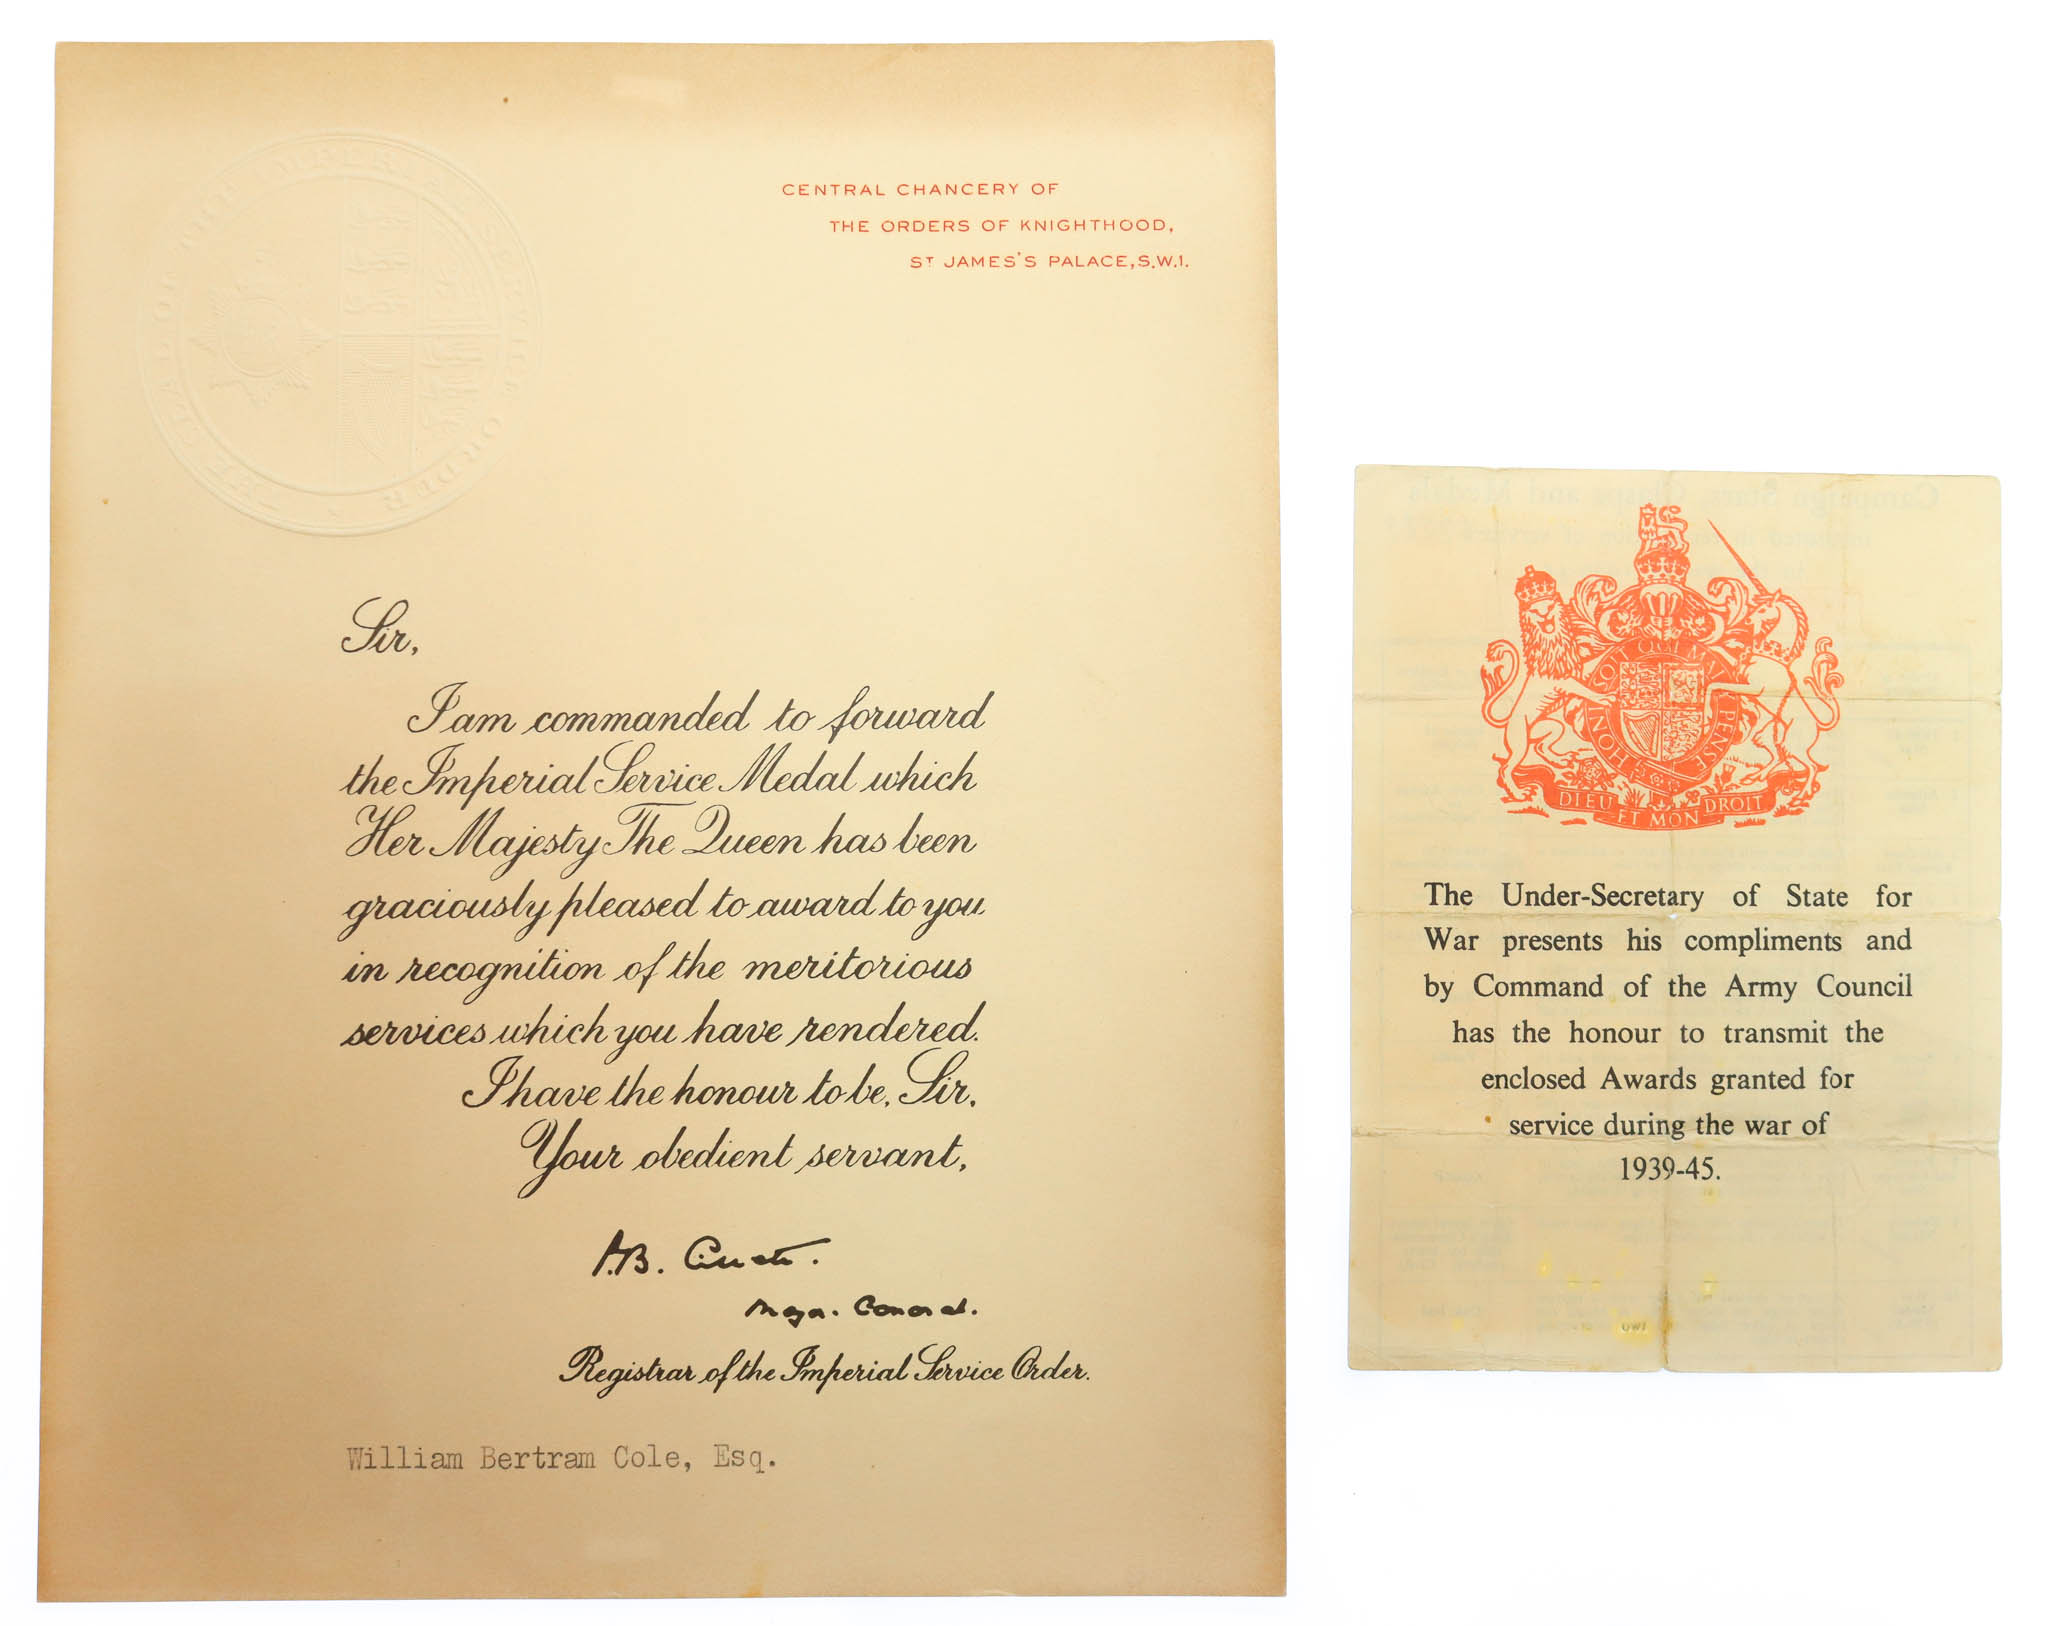 THE SEAL OF THE IMPERIAL SERVICE ORDER
CENTRAL CHANCERY OF
THE ORDERS OF KNIGHTHOOD,
ST JAMES'S PALACE, S.W.1.
Sir,
I am commanded to forward
the Imperial Service Medal which
Her Majesty The Queen has been
graciously pleased to award to you
in recognition of the meritorious
services which you have rendered.
I have the honour to be, Sir,
Your obedient servant,
Registrar of the Imperial Service Order.
William Bertram Cole, Esq.
Campaign Stars, Clasps and Medals
HONI SOIT QUI MAL Y PENSE
DIEU ET MON DROIT
The Under-Secretary of State for
War presents his compliments and
by Command of the Army Council
has the honour to transmit the
enclosed Awards granted for
service during the war of
1939-45.